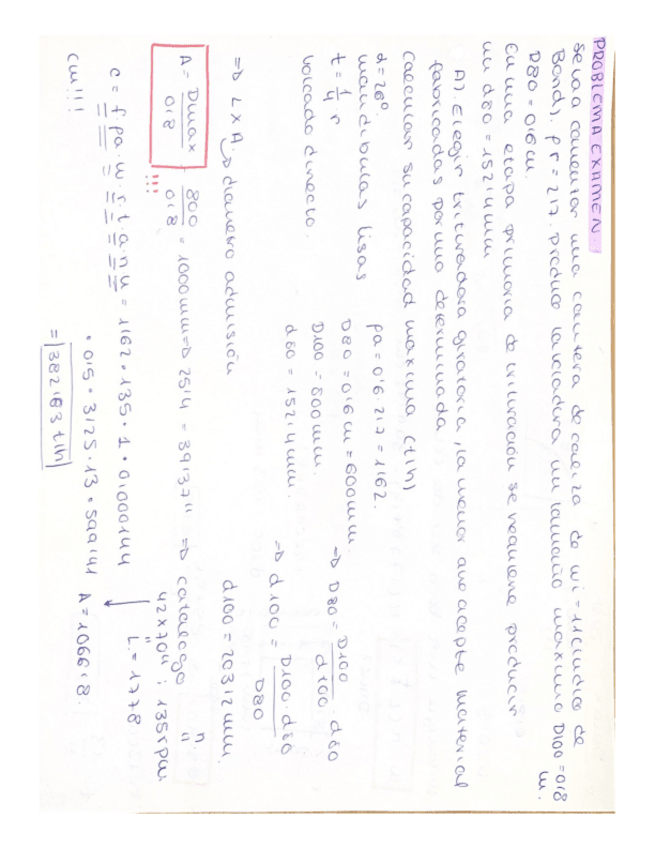 PROBLEMA EXAMEN.
Se va a cementar una cantera de caliza de wi = 11 (indice de
Bond). pr = 2'7. Produce la voladura un tamaño maximo D100 = 0'8 m.
D80 = 0'6 m.
En una etapa primaria de trituración se requiere producir
un d80 = 152'4 mm
A). Elegir trituradora giratoria, la menor que acepte material
fabricadas por una determinada
calcular su capacidad maxima (t/h)
α = 26º
mandibulas lisas
t = 1/4 r
volcado directo.
pa = 0'6 · 2'7 = 1'62.
D80 = 0'6 m = 600 mm.
D100 = 800 mm.
d80 = 152'4 mm.
=> D80 = D100/d100 · d80
=> d100 = D100 · d80 / D80
d100 = 203'2 mm.
=> L x A. -> diametro admisión
A = Dmax / 0'8 · 800 / 0'8 = 1000 mm => 25'4 = 39'37" => catalogo
!!!
42 x 70" ; 135 rpm
L = 1778
c = f · pa · w · r · t · a · n · u = 1'62 · 135 · 1 · 0'000144
· 0'5 · 3'25 · 13 · 599'41 A = 1066'8.
cm!!!
= 382'63 t/h